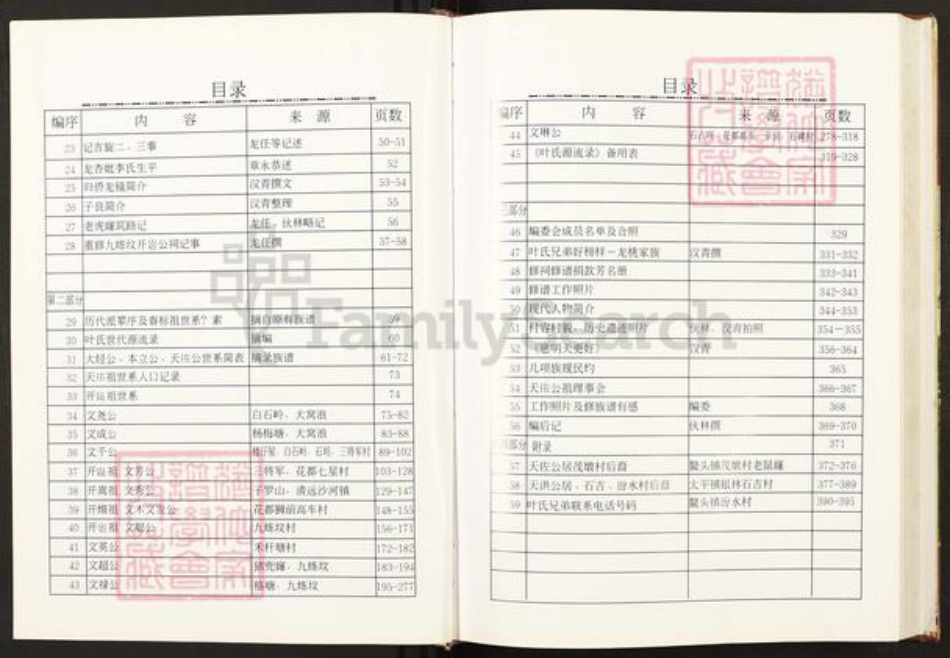 目录
编序 内容 来源 页数
23 记吉旋二、三事 龙任等记述 50-51
24 龙杏妣李氏生平 章永恭述 52
25 归侨龙镜简介 汉青撰文 53-54
26 子良简介 汉青整理 55
27 老虎㘵筑路记 龙任、伙林略记 56
28 重修九练坟开岩公祠记事 龙任撰 57-58
第二部分
29 历代派辈序及春标祖世系?索 摘自原有族谱 59
30 叶氏世代源流录 摘编 60
31 大经公、本立公、天佐公世系简表 摘录族谱 61-72
32 天祐祖世系人口记录 73
33 开 祖世系 74
34 文尧公 白石岭、大窝浪 75-82
35 文成公 杨梅塘、大窝浪 83-88
36 文千公 白石岭、石坭、三将军村 89-102
37 开 祖 文芳公 三将军、花都七星村 103-128
38 开嵩祖 文秀公 子罗山、清远沙河镇 129-147
39 开维祖 文木文发公 花都狮前高车村 148-155
40 开 祖 文聪公 九练坟村 156-171
41 文英公 禾秆塘村 172-182
42 文超公 猪兜㘵、九练坟 183-194
43 文禄公 塘、九练坟 195-277
目录
编序 内容 来源 页数
44 文琳公 278-318
45 《叶氏源流录》备用表 319-328
三部分
46 编委会成员名单及合照 329
47 叶氏兄弟好榜样－龙桃家族 汉青撰 331-332
48 修祠修谱捐款芳名册 333-341
49 修谱工作照片 342-343
50 现代人物简介 344-353
51 村容村貌、历史遗迹照片 伙林、汉青拍照 354-355
52 《愿明天更好》 汉青 356-364
53 几项族规民约 365
54 天祐公祖理事会 366-367
55 工作照片及修族谱有感 编委 368
56 编后记 伙林撰 369-370
四部分 附录 371
57 天佐公居茂墩村后裔 鳌头镇茂墩村老鼠㘵 372-376
58 天洪公居、石吉、汾水村后裔 太平镇银林石吉村 377-389
59 叶氏兄弟联系电话号码 鳌头镇汾水村 390-395
FamilySearch